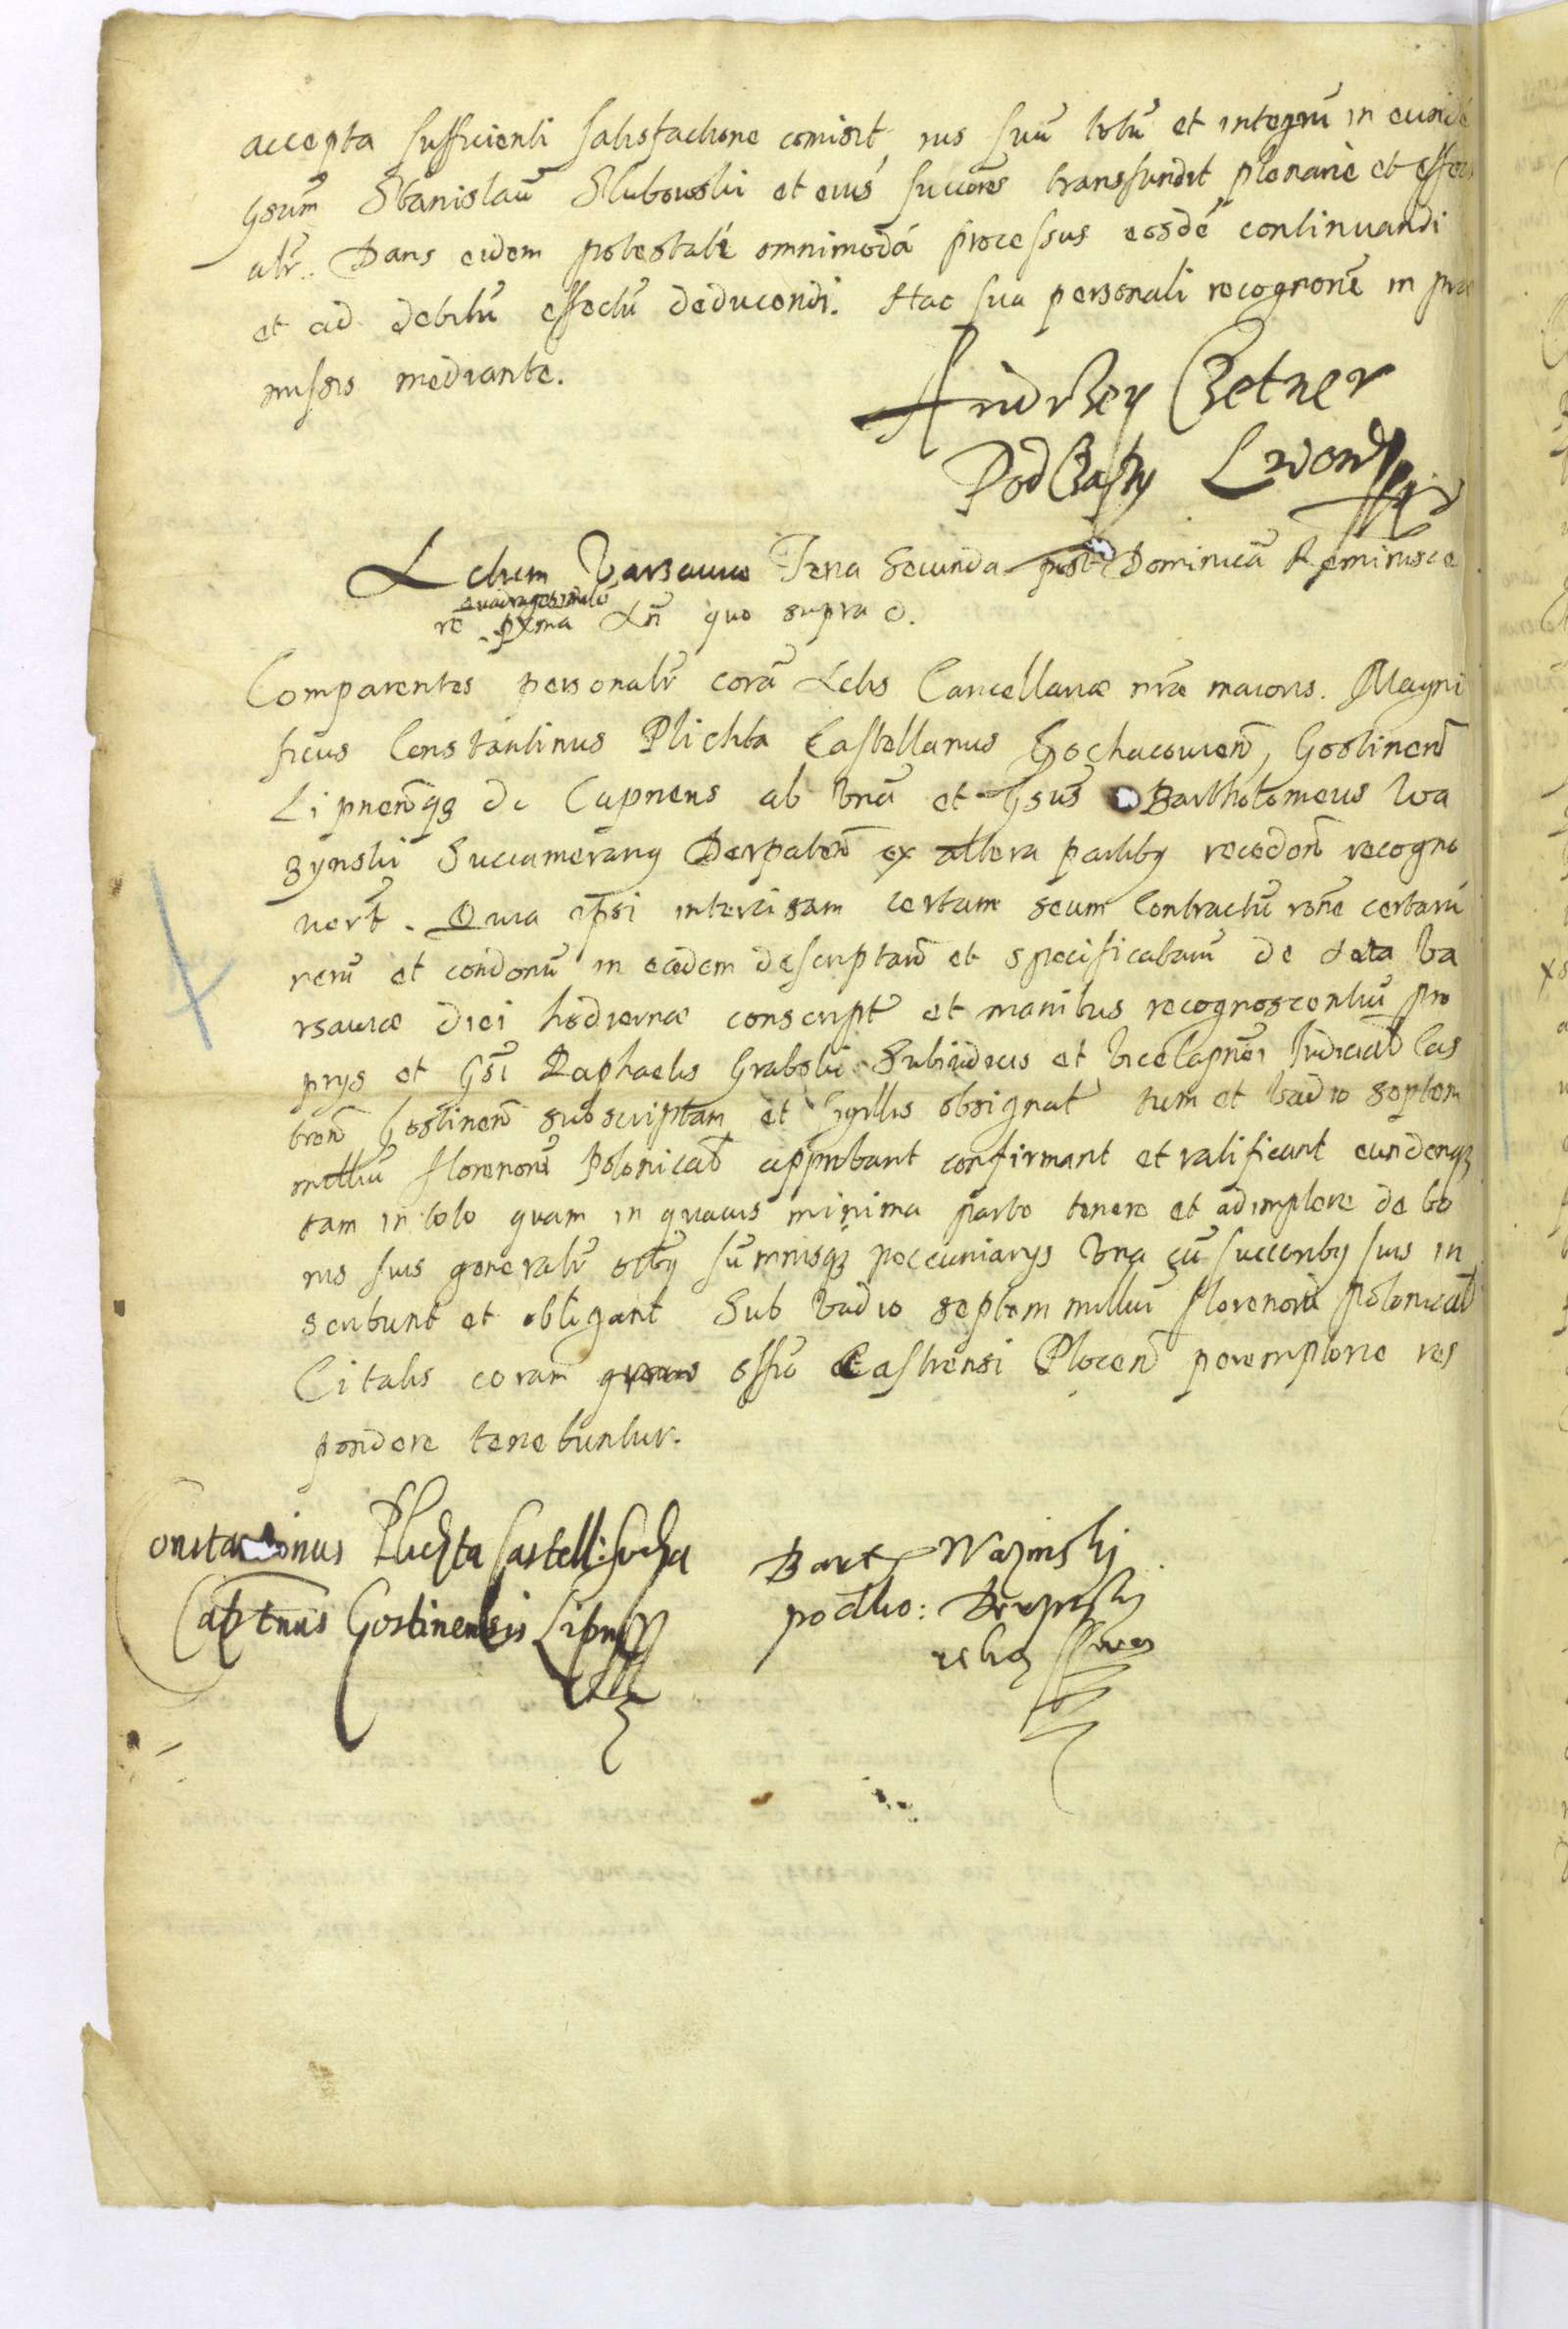 accepta sufficienti satisfactione comisit, ius suũ totũ et integrũ in eundẽ
Gsum̃ Stanislaũ Slubowski et eius succores transfundit plenarie et effectu
alr̃. Dans eidem potestatẽ omnimodã processus eosdẽ continuandi
et ad debitũ effectũ deducendi. Hac sua personali recognone in præ
missis mediante.
Andrzey Czetner
Podczaszy Lwowski
Actum Varsaviæ Feria Secunda post Dominicã Reminisce
re Quadragesimale pxma Añ quo supra
Comparentes personalr̃ corã Actis Cancellariæ nr̃æ maioris. Magni
ficus Constantinus Plichta Castellanus Sochaczovieñ, Gostineñ
Lipneñqȝ Capneus ab vnã et Gsũs Bartholomeus Wa
zynski Succamerarius Derpateñ ex altera partiby recedeñ recogno
uert̃. Quia ipsi intercisam certam seum Contractũ rõne certarũ
rerũ et condonũ in eadem descriptarũ et specificatarũ de data Va
rsauiæ diei hodiernæ conscript̃ et manibus recognoscentiũ pro
prys et Gsĩ Raphaelis Grabski Subiudicis et Vicecapnei Judicial̃ Cas
treñ Gostineñ subscriptam et Sigillis obsignat̃ tum et vadio septem
milliũ florenorũ Polonical̃ approbant confirmant et ratificant eundemqȝ
tam in toto quam in quauis minima parte tenere et adimplere de bo
nis suis generalr̃ oiby sũmmisqȝ pecuniarys vna cũ succoriby suis in
scribunt et obligant Sub vadio septem milliũ florenorũ Polonical̃
Citatis coram offio Castrensi Ploceñ peremptorie res
pondere tenebuntur.
Constantinus Plichta Castell: Socha
Captneus Gostinensis Lipn
Bart Wazinski
podko: Derpski
ręką swą